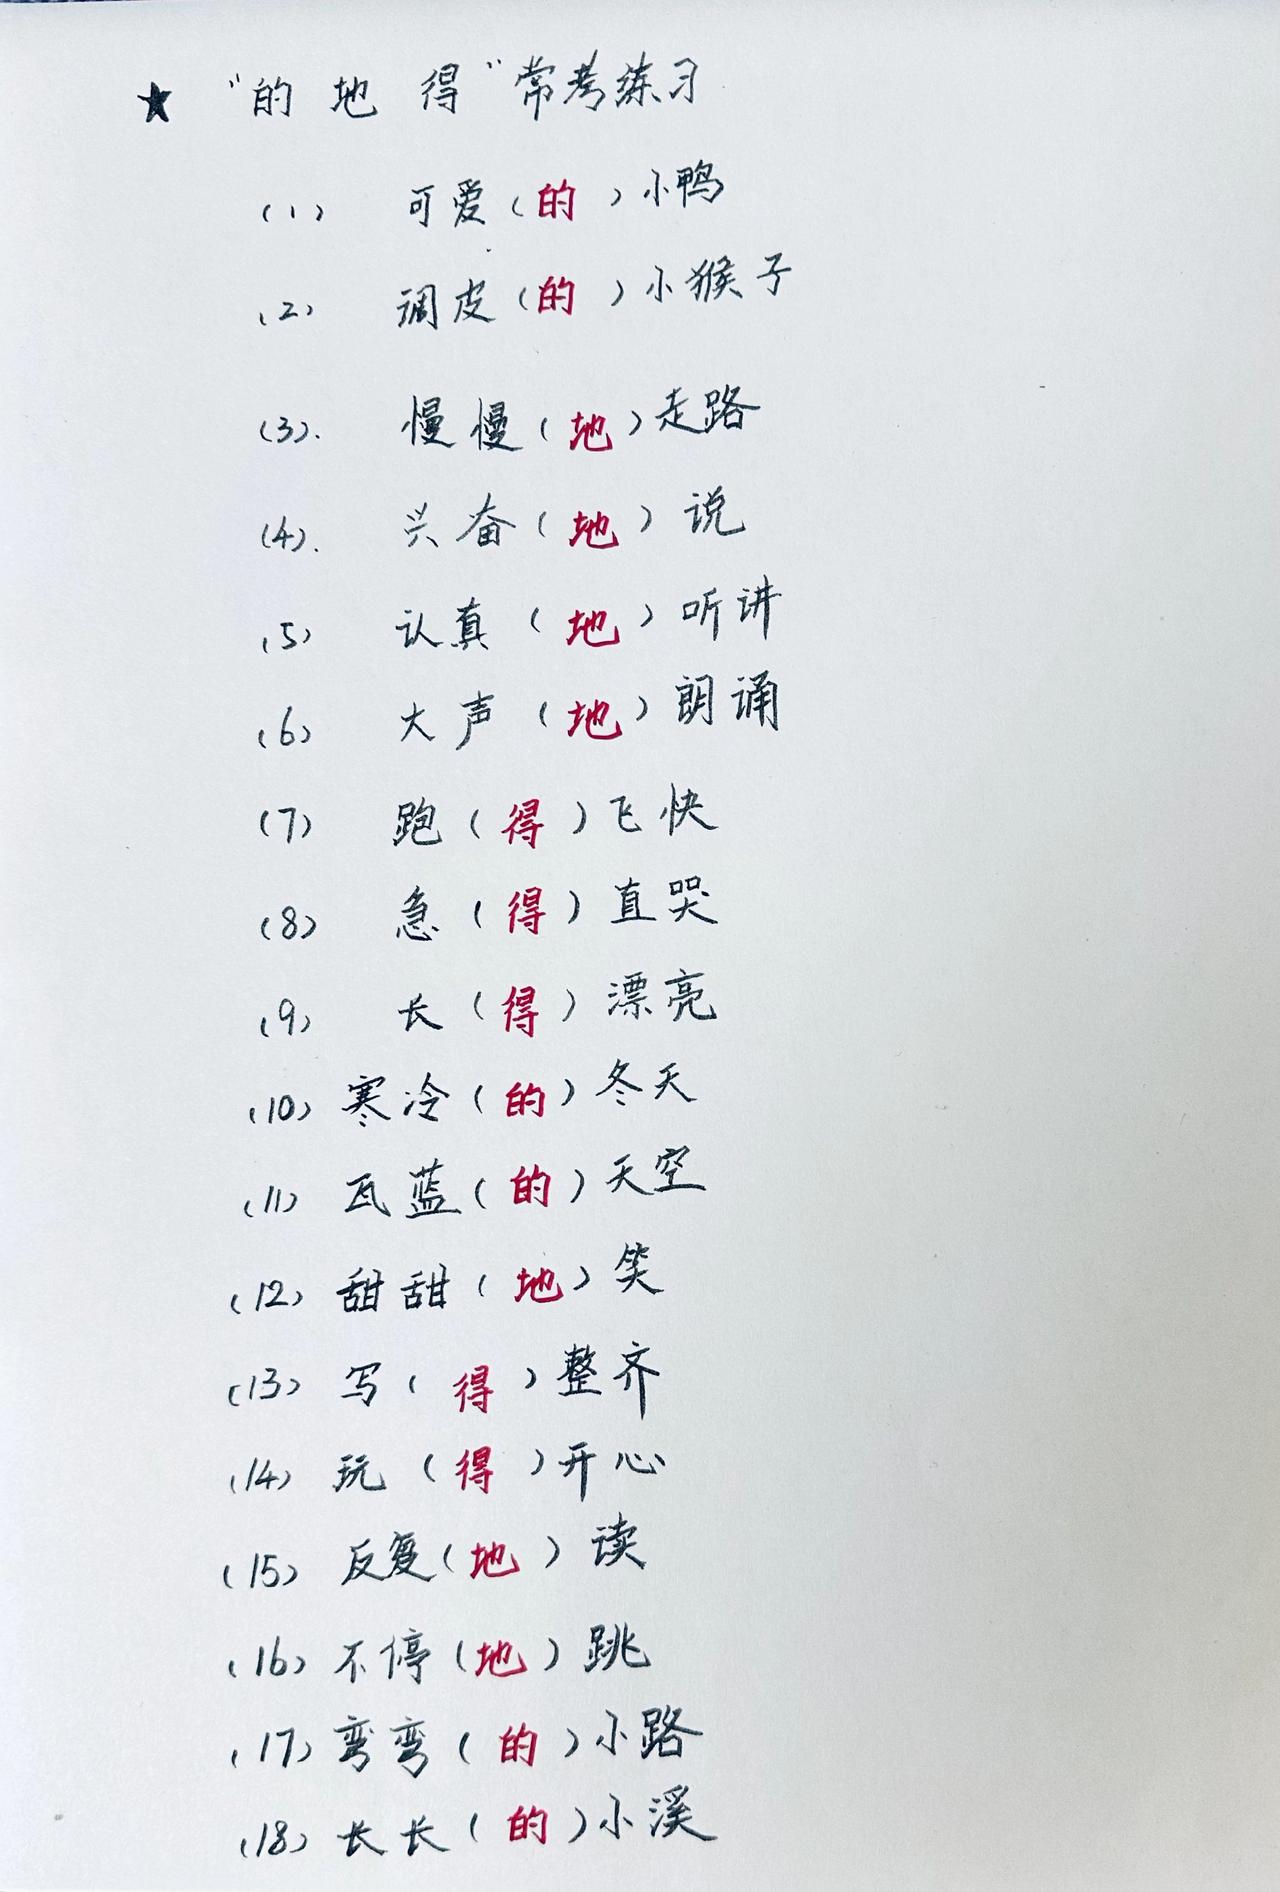 ★ "的 地 得"常考练习
(1) 可爱(的)小鸭
(2) 调皮(的)小猴子
(3). 慢慢(地)走路
(4). 兴奋(地)说
(5) 认真(地)听讲
(6) 大声(地)朗诵
(7) 跑(得)飞快
(8) 急(得)直哭
(9) 长(得)漂亮
(10) 寒冷(的)冬天
(11) 瓦蓝(的)天空
(12) 甜甜(地)笑
(13) 写(得)整齐
(14) 玩(得)开心
(15) 反复(地)读
(16) 不停(地)跳
(17) 弯弯(的)小路
(18) 长长(的)小溪